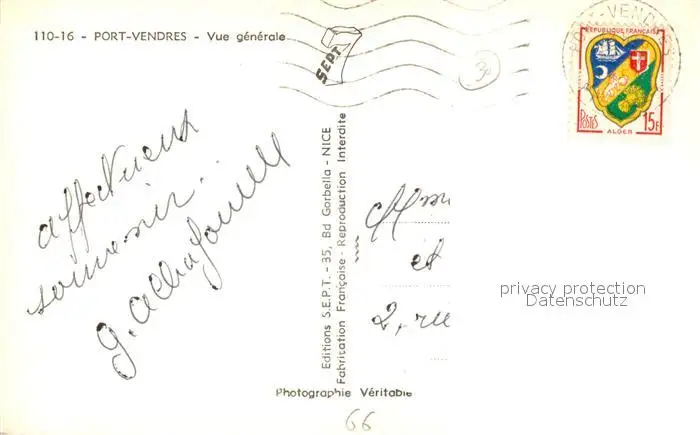 110-16 - PORT-VENDRES - Vue générale
SEPT
30
PORT-VENDRES
REPUBLIQUE FRANÇAISE
POSTES 15F
ALGER
affectueux
souvenir.
g.
et
2, rue
Editions S.E.P.T. - 35, Bd Gorbella - NICE
Fabrication Française - Reproduction Interdite
privacy protection
Datenschutz
Photographie Véritable
66